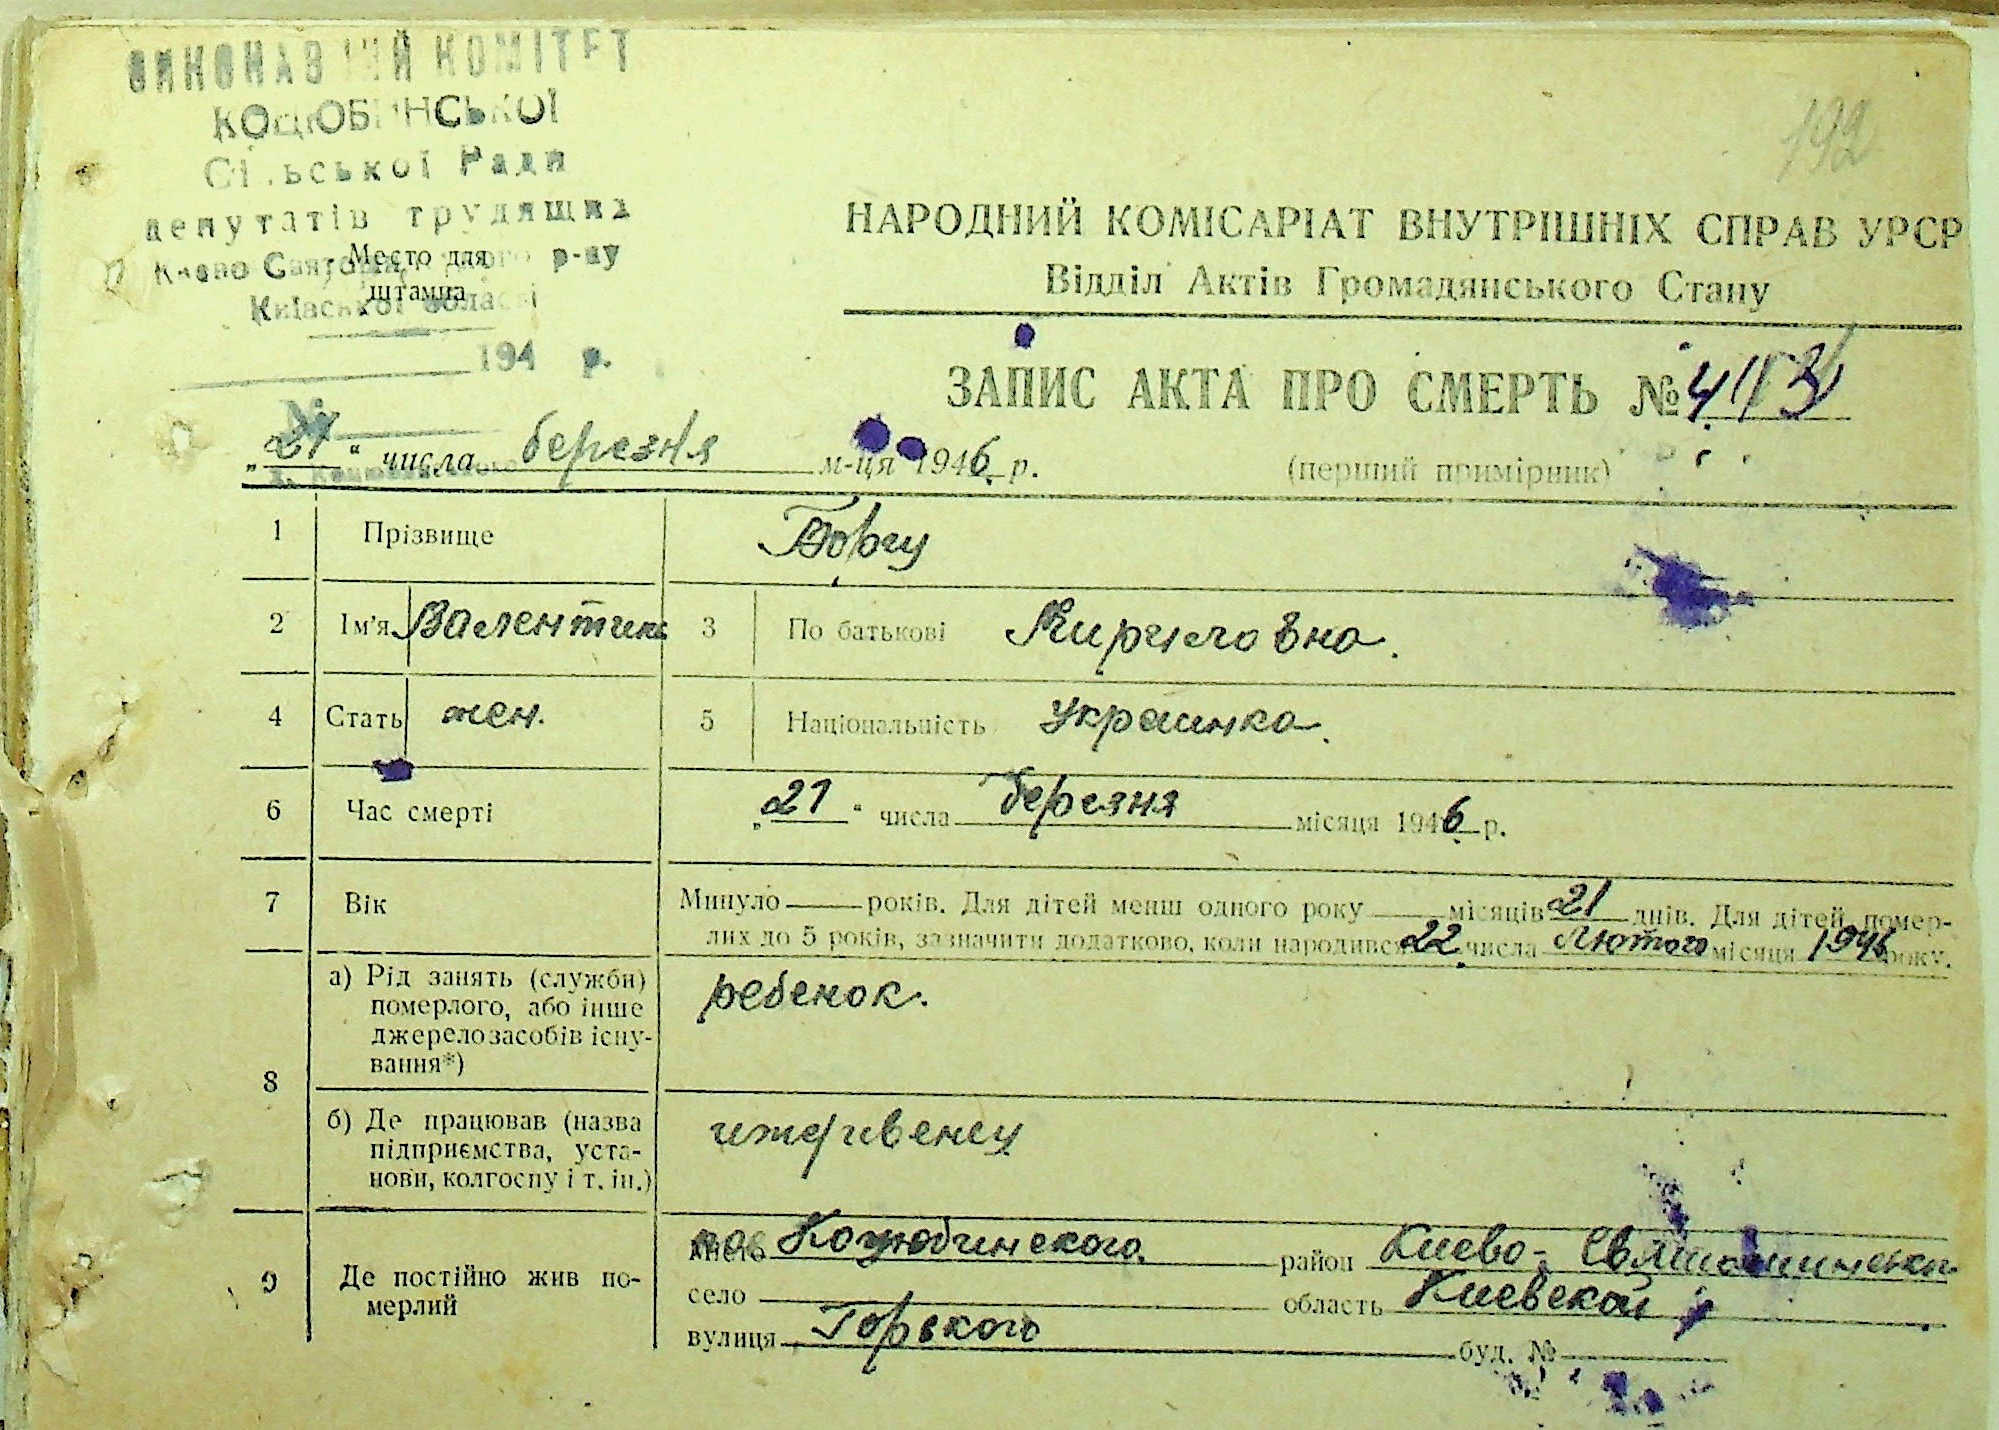 192
ВИКОНАВЧИЙ КОМІТЕТ
КОЦЮБИНСЬКОЇ
Сільської Ради
депутатів трудящих
Києво Святошинського р-ну
Київської області
Место для
штампа
194 р.
№
НАРОДНИЙ КОМІСАРІАТ ВНУТРІШНІХ СПРАВ УРСР
Відділ Актів Громадянського Стану
ЗАПИС АКТА ПРО СМЕРТЬ №
„21“ числа березня м-ця 1946 р.
(перший примірник)
1 Прізвище
2 Ім'я Валентина 3 По батькові Кирилловна.
4 Стать жен. 5 Національність украинка.
6 Час смерті „21“ числа березня місяця 1946 р.
7 Вік Минуло років. Для дітей менш одного року місяців 21 днів. Для дітей, помер-
лих до 5 років, зазначити додатково, коли народився 22 числа Лютого місяця 1946 року.
8 а) Рід занять (служби)
померлого, або інше
джерело засобів існу-
вання*)
ребенок.
б) Де працював (назва
підприємства, уста-
нови, колгоспу і т. ін.)
иждивенец
9 Де постійно жив по-
мерлий
місто пос Коцюбинского район Киево-Святошинск
село область Киевской
вулиця Горького буд. №